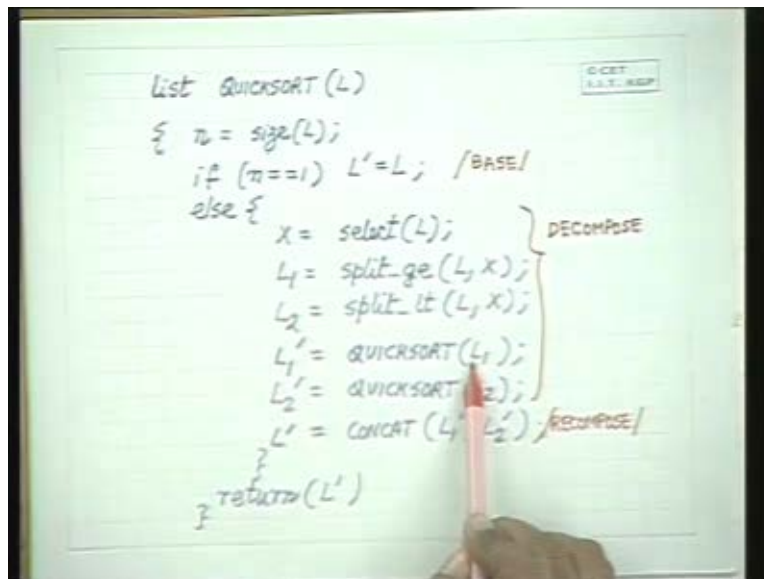 list QUICKSORT (L)
C CET
I.I.T. KGP
{ n = size(L);
if (n==1) L' = L; /BASE/
else {
x = select(L);
DECOMPOSE
L1 = split_ge (L, x);
L2 = split_lt (L, x);
L1' = QUICKSORT (L1);
L2' = QUICKSORT 2);
L' = CONCAT (L1' L2'); /RECOMPOSE/
}
} return (L')